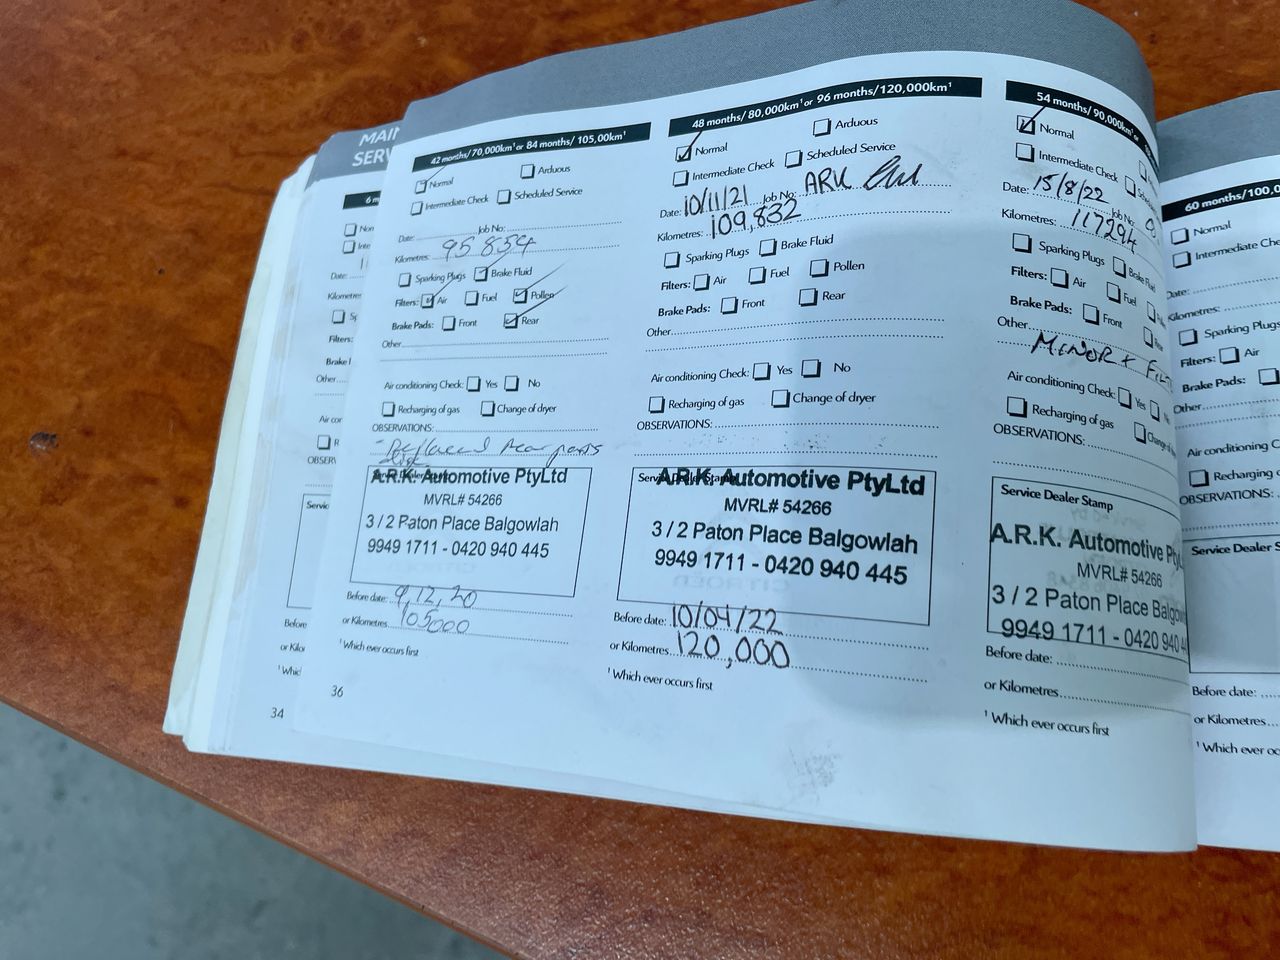 MAI
SERV
6 m
Date:
Kilometres
Filters:
Other
Before
34
42 months/ 70,000km¹ or 84 months/ 105,00km¹
Normal Arduous
Intermediate Check Scheduled Service
Date: Job No:
Kilometres: 95 854
Sparking Plugs Brake Fluid
Filters: Air Fuel Pollen
Brake Pads: Front Rear
Other
Air conditioning Check: Yes No
Recharging of gas Change of dryer
OBSERVATIONS:
Replaced rear pads
A.R.K. Automotive PtyLtd
MVRL# 54266
3 / 2 Paton Place Balgowlah
9949 1711 - 0420 940 445
Before date: 9,12,20
or Kilometres 105000
¹ Which ever occurs first
36
48 months/ 80,000km¹ or 96 months/120,000km¹
Normal Arduous
Intermediate Check Scheduled Service
Date: 10/11/21 Job No: ARK
Kilometres: 109,832
Sparking Plugs Brake Fluid
Filters: Air Fuel Pollen
Brake Pads: Front Rear
Other
Air conditioning Check: Yes No
Recharging of gas Change of dryer
OBSERVATIONS:
Service Dealer Stamp
A.R.K. Automotive PtyLtd
MVRL# 54266
3 / 2 Paton Place Balgowlah
9949 1711 - 0420 940 445
Before date: 10/04/22
or Kilometres 120,000
¹ Which ever occurs first
54 months/ 90,000km¹ or
Normal
Intermediate Check
Date: 15/8/22 Job No:
Kilometres: 117294
Sparking Plugs Brake Fluid
Filters: Air Fuel
Brake Pads: Front
Other
MINOR +
Air conditioning Check: Yes
Recharging of gas
OBSERVATIONS:
Service Dealer Stamp
A.R.K. Automotive Pty
MVRL# 54266
3 / 2 Paton Place Balgow
9949 1711 - 0420 940 4
Before date:
or Kilometres
¹ Which ever occurs first
60 months/100,0
Normal
Intermediate Che
Date:
Kilometres:
Sparking Plugs
Filters: Air
Brake Pads:
Other
Air conditioning C
Recharging o
OBSERVATIONS:
Service Dealer S
Before date:
or Kilometres
¹ Which ever oc